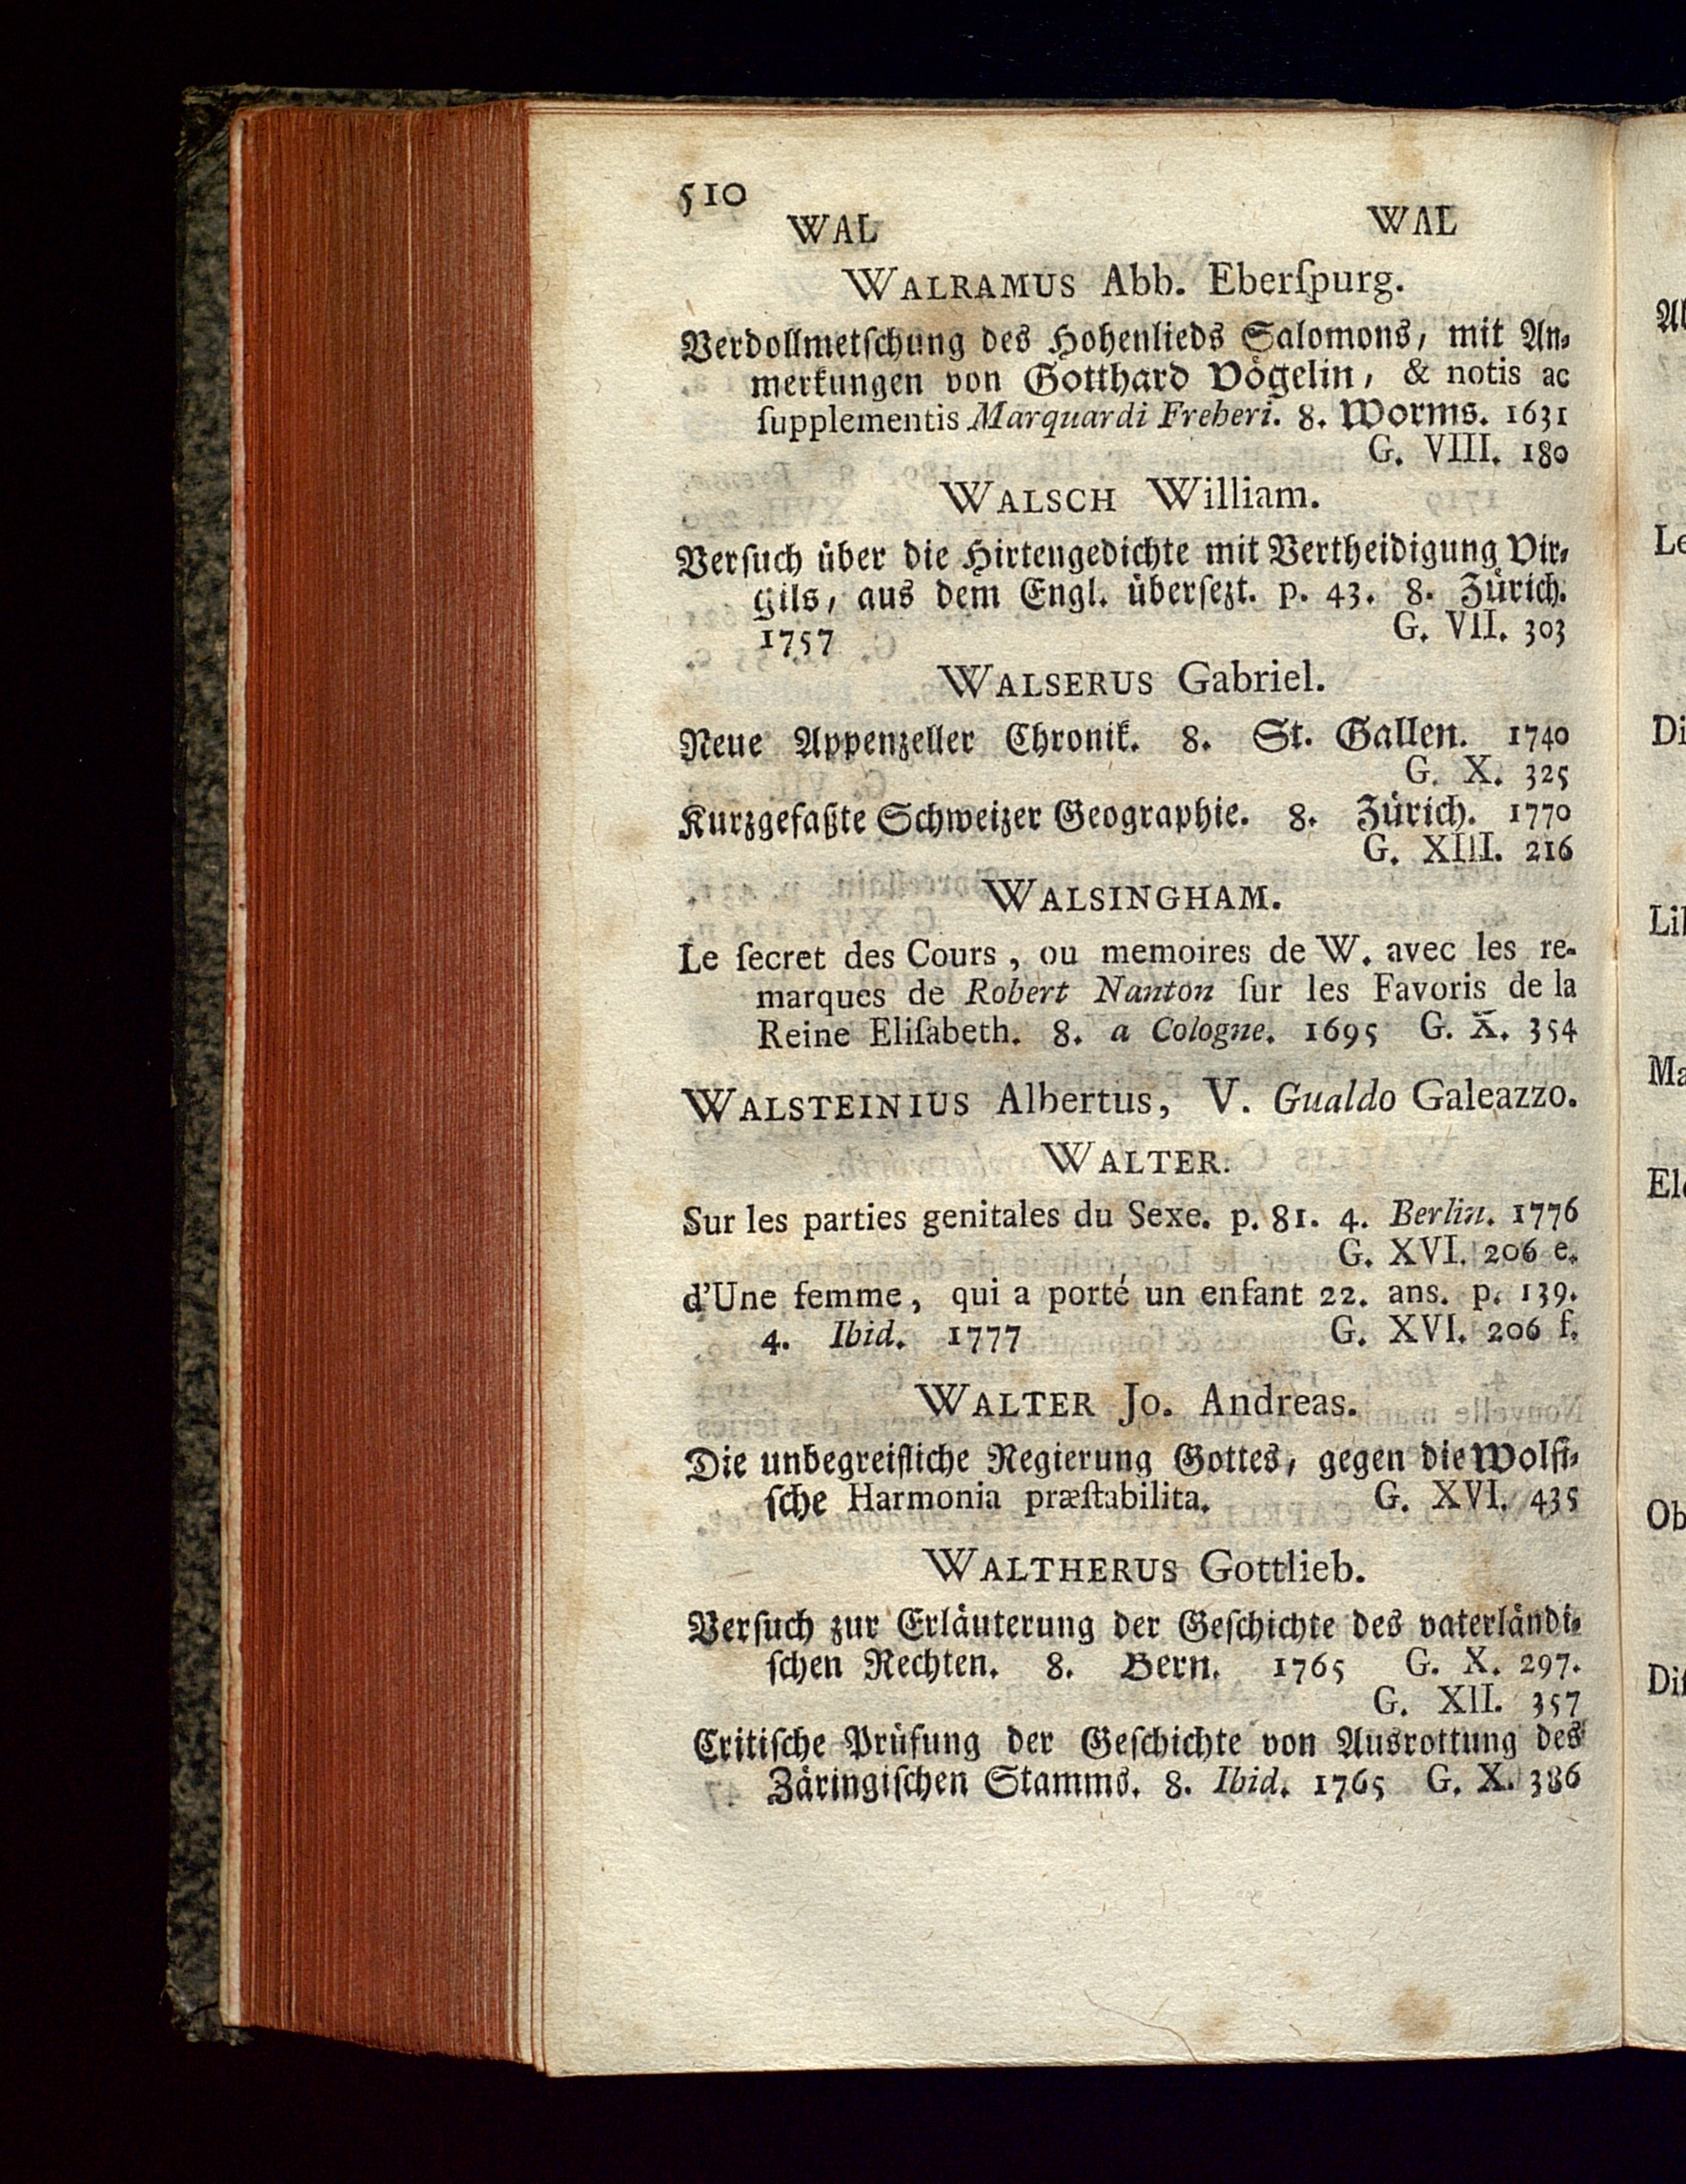 510
WAL WAL
WALRAMUS Abb. Eberſpurg.
Verdollmetſchung des Hohenlieds Salomons, mit An-
merkungen von Gotthard Vögelin, & notis ac
ſupplementis Marquardi Freheri. 8. Worms. 1631
G. VIII. 180
WALSCH William.
Verſuch über die Hirtengedichte mit Vertheidigung Vir-
gils, aus dem Engl. überſezt. p. 43. 8. Zürich.
1757 G. VII. 303
WALSERUS Gabriel.
Neue Appenzeller Chronik. 8. St. Gallen. 1740
G. X. 325
Kurzgefaßte Schweizer Geographie. 8. Zürich. 1770
G. XIII. 216
WALSINGHAM.
Le ſecret des Cours, ou memoires de W. avec les re-
marques de Robert Nanton ſur les Favoris de la
Reine Eliſabeth. 8. a Cologne. 1695 G. X. 354
WALSTEINIUS Albertus, V. Gualdo Galeazzo.
WALTER.
Sur les parties genitales du Sexe. p. 81. 4. Berlin. 1776
G. XVI. 206 e.
d'Une femme, qui a porté un enfant 22. ans. p. 139.
4. Ibid. 1777 G. XVI. 206 f.
WALTER Jo. Andreas.
Die unbegreifliche Regierung Gottes, gegen die Wolfi-
ſche Harmonia præſtabilita. G. XVI. 435
WALTHERUS Gottlieb.
Verſuch zur Erläuterung der Geſchichte des vaterländi-
ſchen Rechten. 8. Bern. 1765 G. X. 297.
G. XII. 357
Critiſche Prüfung der Geſchichte von Ausrottung des
Zäringiſchen Stamms. 8. Ibid. 1765 G. X. 386
Al
Le
Di
Lil
Ma
Ele
Ob
Diſ